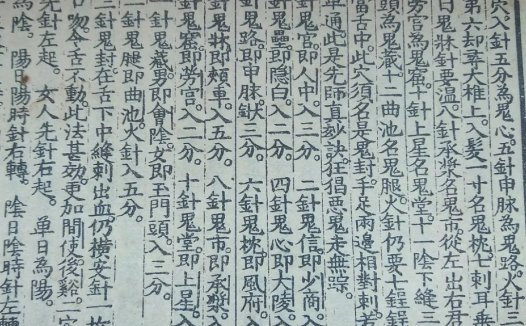 穴。入針五分為鬼心。五針申脉為鬼路。火針三
第六却尋大椎上。入髮一寸名鬼枕。七刺耳垂
日鬼牀針要溫。八針承漿名鬼市。從左出右君
勞宮為鬼窟。十針上星名鬼堂。十一陰下縫三
頭為鬼藏。十二曲池名鬼腿。火針仍要七鋥鋥
當舌中。此穴須名是鬼封。手足兩邊相對刺。若
單通。此是先師真妙訣。狂猖惡鬼走無踪。
針鬼宮。即人中。入三分。二針鬼信。即少商。入
針鬼壘。即隱白。入二分。四針鬼心。即大陵。入
針鬼路。即申脉。入三分。六針鬼枕。即風府。入
針鬼牀。即頰車。入五分。八針鬼市。即承漿。入
針鬼窟。即勞宮。入二分。十針鬼堂。即上星。入
一針鬼藏。男即會陰。女即玉門頭。入三分。
二針鬼腿。即曲池。火針入五分。
三針鬼封。在舌下中縫。刺出血。仍橫安針一枚
口吻。令舌不動。此法甚效。更加間使後谿二穴
先針左起。女人先針右起。單日為陽。
為陰。陽日陽時針右轉。陰日陰時針左轉